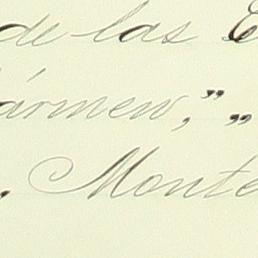 de las
ármen,",,
, Monte